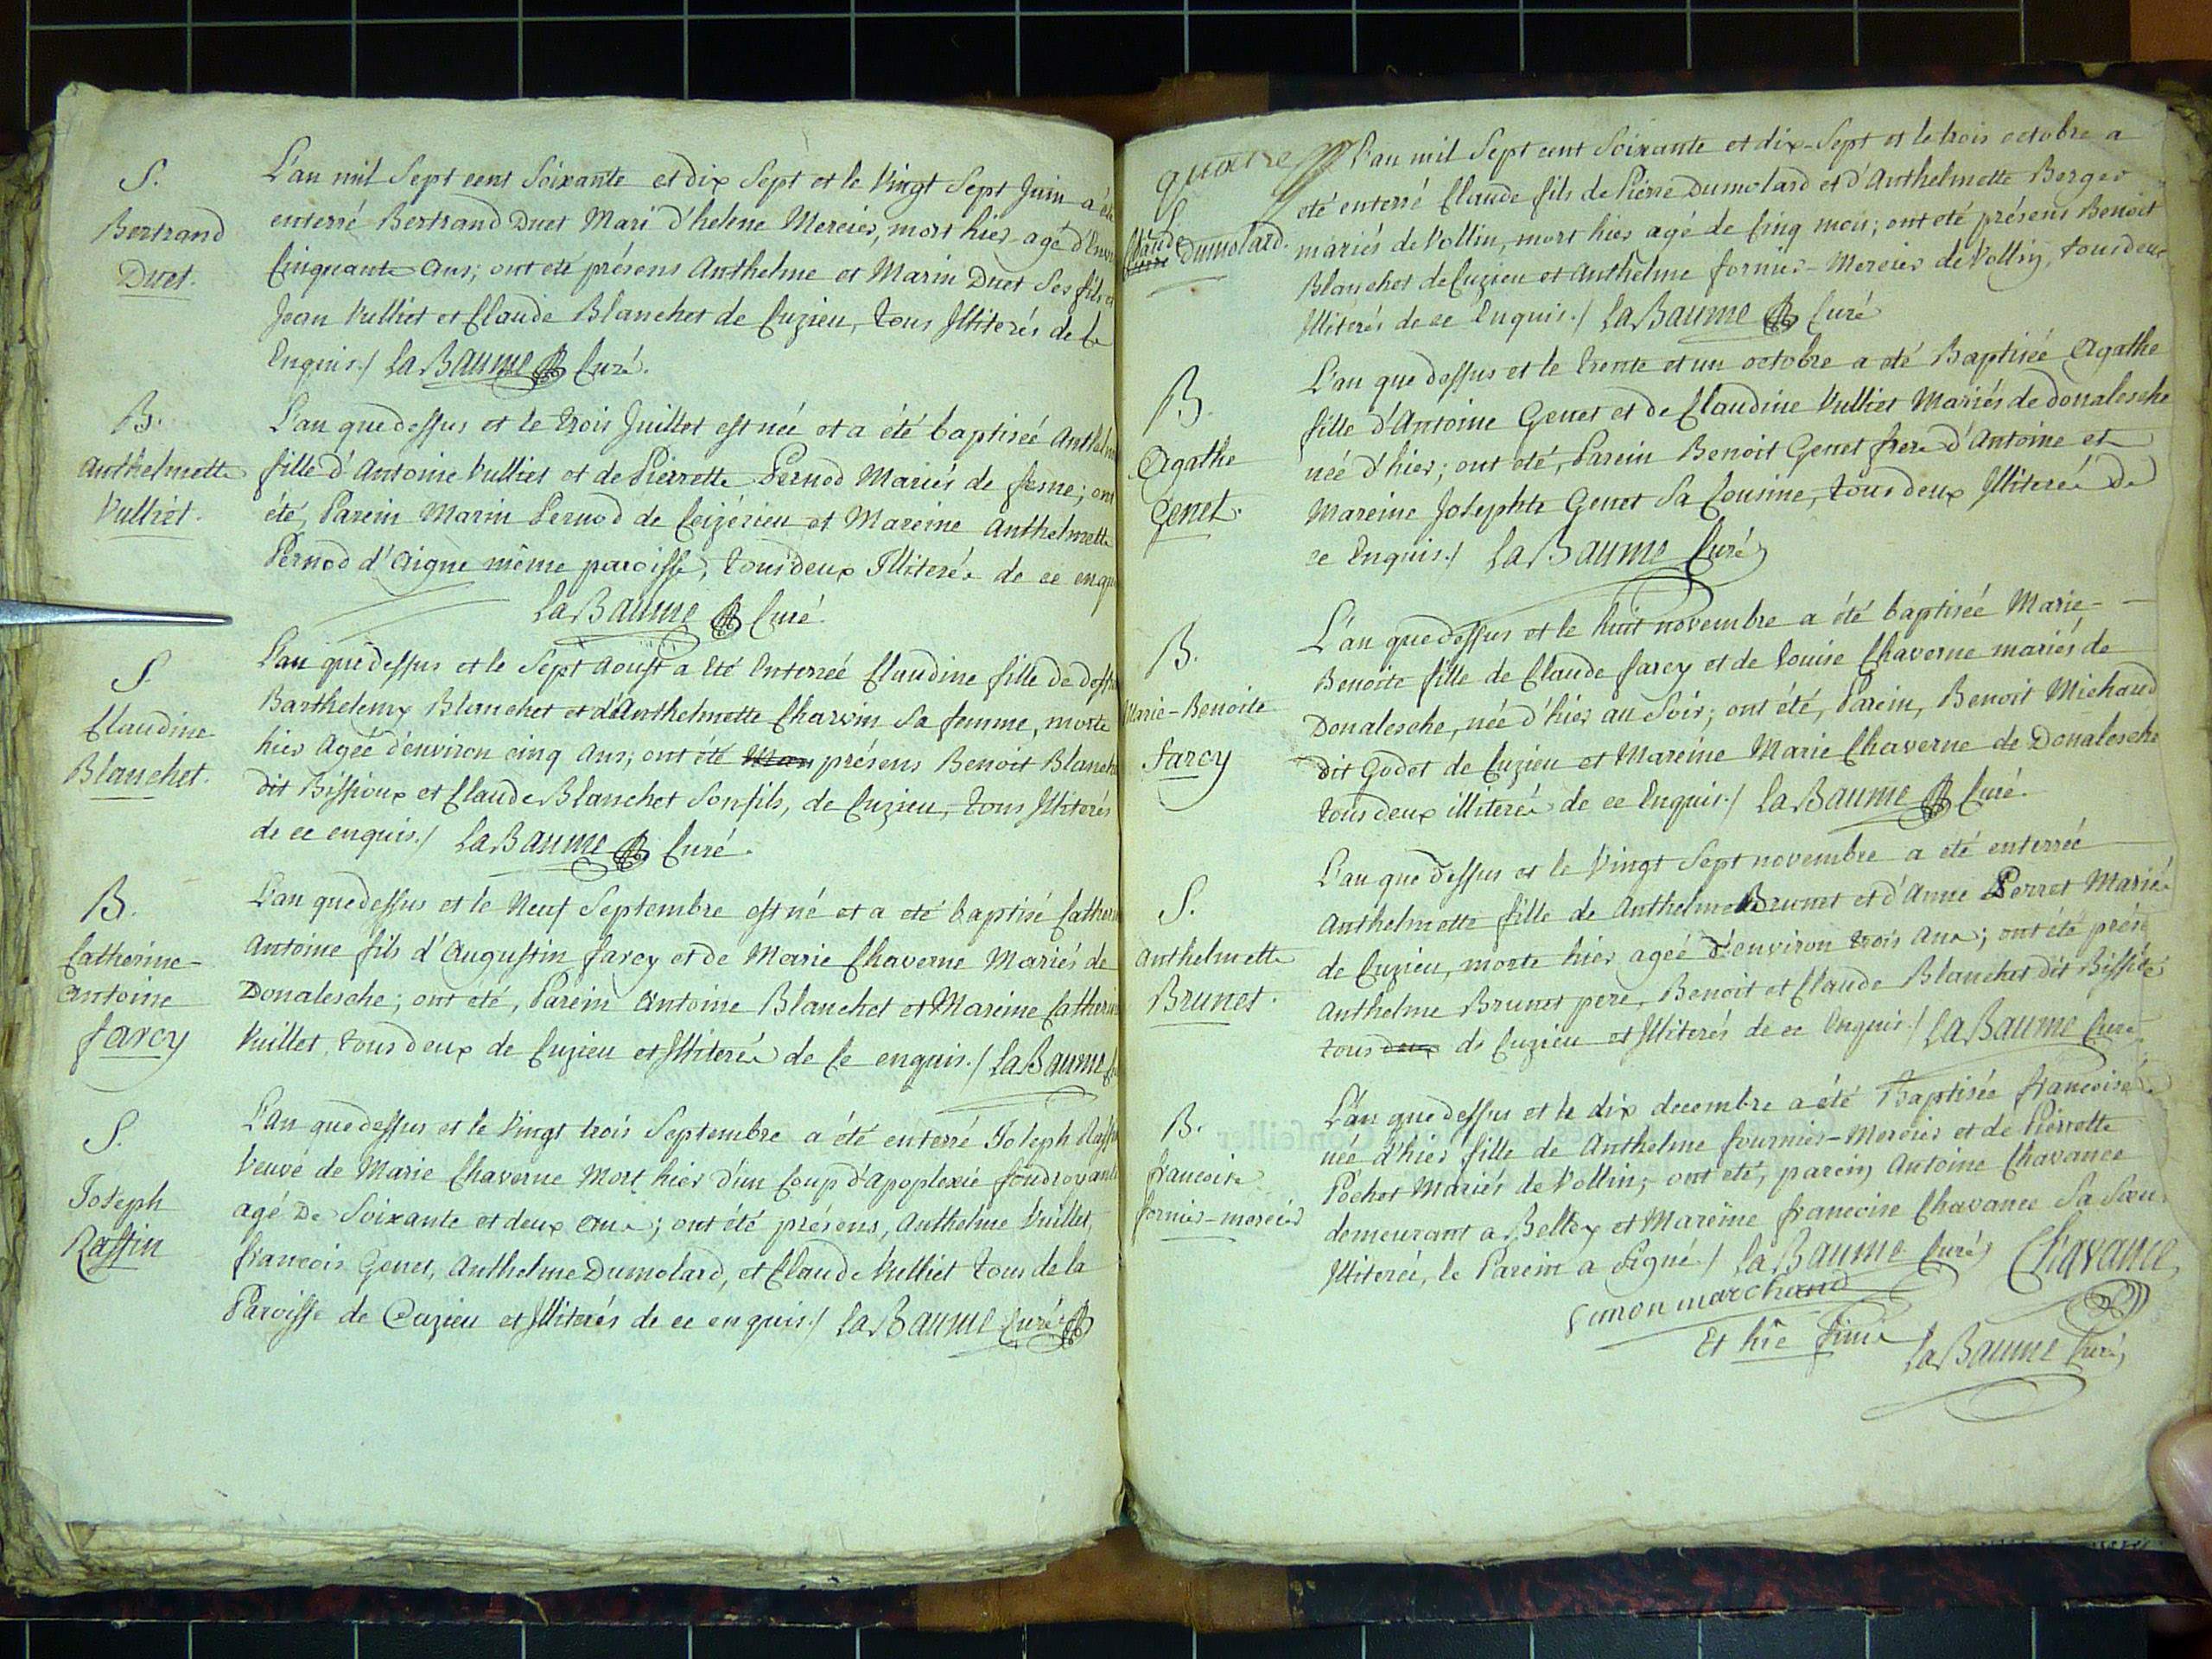 S.
Bertrand
Duet.
L'an mil Sept cent Soixante et dix Sept et le Vingt Sept Juin a été
enterré Bertrand Duet Mari d'helene Mercier, mort hier agé d'Envi
Cinquante ans; ont eté présens Anthelme et Marin Duet Ses fils et
Jean Vulliet et Claude Blanchet de Cuzieu, tous Illiterés de Ce
Enquis./ La Baume Curé.
B.
Anthelmette
Vulliet.
L'an que dessus et le trois Juillet est née et a été baptisée Anthelm
fille d'Antoine Vulliet et de Pierrette Pernod Mariés de fesne; ont
été, Parein Marin Pernod de Ceizérieu et Mareine Anthelmette
Pernod d'Aigne même paroisse, tous deux Illiterés de ce enqu
La Baume Curé.
S.
Claudine
Blanchet.
L'an que dessus et le Sept Aoust a Eté Enterrée Claudine fille de deff
Barthelemy Blanchet et d'Anthelmette Charvin Sa femme, morte
hier Agée d'environ cinq Ans; ont été présens Benoit Blanch
dit Bissioux et Claude Blanchet Son fils, de Cuzieu, tous Illiterés
de ce enquis./ La Baume Curé.
B.
Catherine-
Antoine
farcy
L'an que dessus et le Neuf Septembre est né et a eté baptisé Catherin
Antoine fils d'Augustin farcy et de Marie Chaverne Mariés de
Donalesche; ont été, Parein Antoine Blanchet et Mareine Catherin
Vuillet, tous deux de Cuzieu et Illiterés de Ce enquis./ La Baume
S.
Joseph
Raffin
L'an que dessus et le Vingt trois Septembre a été enterré Joseph Raffin
Veuve de Marie Chaverne Mort hier d'un Coup d'apoplexie foudroyante
agé De Soixante et deux ans; ont été présens, Anthelme Vuillet,
francois Genet, Anthelme Dumolard, et Claude Vulliet tous de la
Paroisse de Cuzieu et Illiterés de ce enquis./ La Baume Curé
quatre
S.
Claude
Dumolard.
L'an mil Sept cent Soixante et dix-Sept et le trois octobre a
eté enterré Claude fils de Pierre Dumolard et d'Anthelmette Berger
mariés de Vollin, mort hier agé de Cinq mois; ont eté présens Benoit
Blanchet de Cuzieu et Anthelme fornier-Mercier de Vollin, tous deux
Illiterés de ce Enquis./ La Baume Curé
B.
Agathe
Genet.
L'an que dessus et le trente et un octobre a eté Baptisée Agathe
fille d'Antoine Genet et de Claudine Vulliet Mariés de donalesche
née d'hier; ont eté, Parein Benoit Genet frere d'Antoine et
Mareine Josephte Genet Sa Cousine, tous deux Illiterés de
ce Enquis./ La Baume Curé
B.
Marie-Benoite
farcy
L'an que dessus et le huit novembre a été baptisée Marie-
Benoite fille de Claude farcy et de Louise Chaverne mariés de
Donalesche, née d'hier au Soir; ont été, Parein, Benoit Michaud
dit Godet de Cuzieu et Mareine Marie Chaverne de Donalesche
tous deux illiterés de ce Enquis./ La Baume Curé.
S.
Anthelmette
Brunet.
L'an que dessus et le Vingt Sept novembre a eté enterrée
Anthelmette fille de Anthelme Brunet et d'Anne Perret Mariés
de Cuzieu, morte hier agée d'environ trois ans; ont été prés
Anthelme Brunet pere, Benoit et Claude Blanchet dit Bissi
tous deux de Cuzieu et Illiterés de ce Enquis./ La Baume Curé
B.
francoise
fornier-mercier
L'an que dessus et le dix decembre a été Baptisée francoise
née d'hier fille de Anthelme fournier-Mercier et de Pierrette
Pochet Mariés de Vollin; ont eté, parein Antoine Chavance
demeurant a Belley et Mareine francoise Chavance Sa Soeur
Illiterée, le Parein a Signé./ La Baume Curé Chavance
Simon marchand
Et hic finis La Baume Curé,